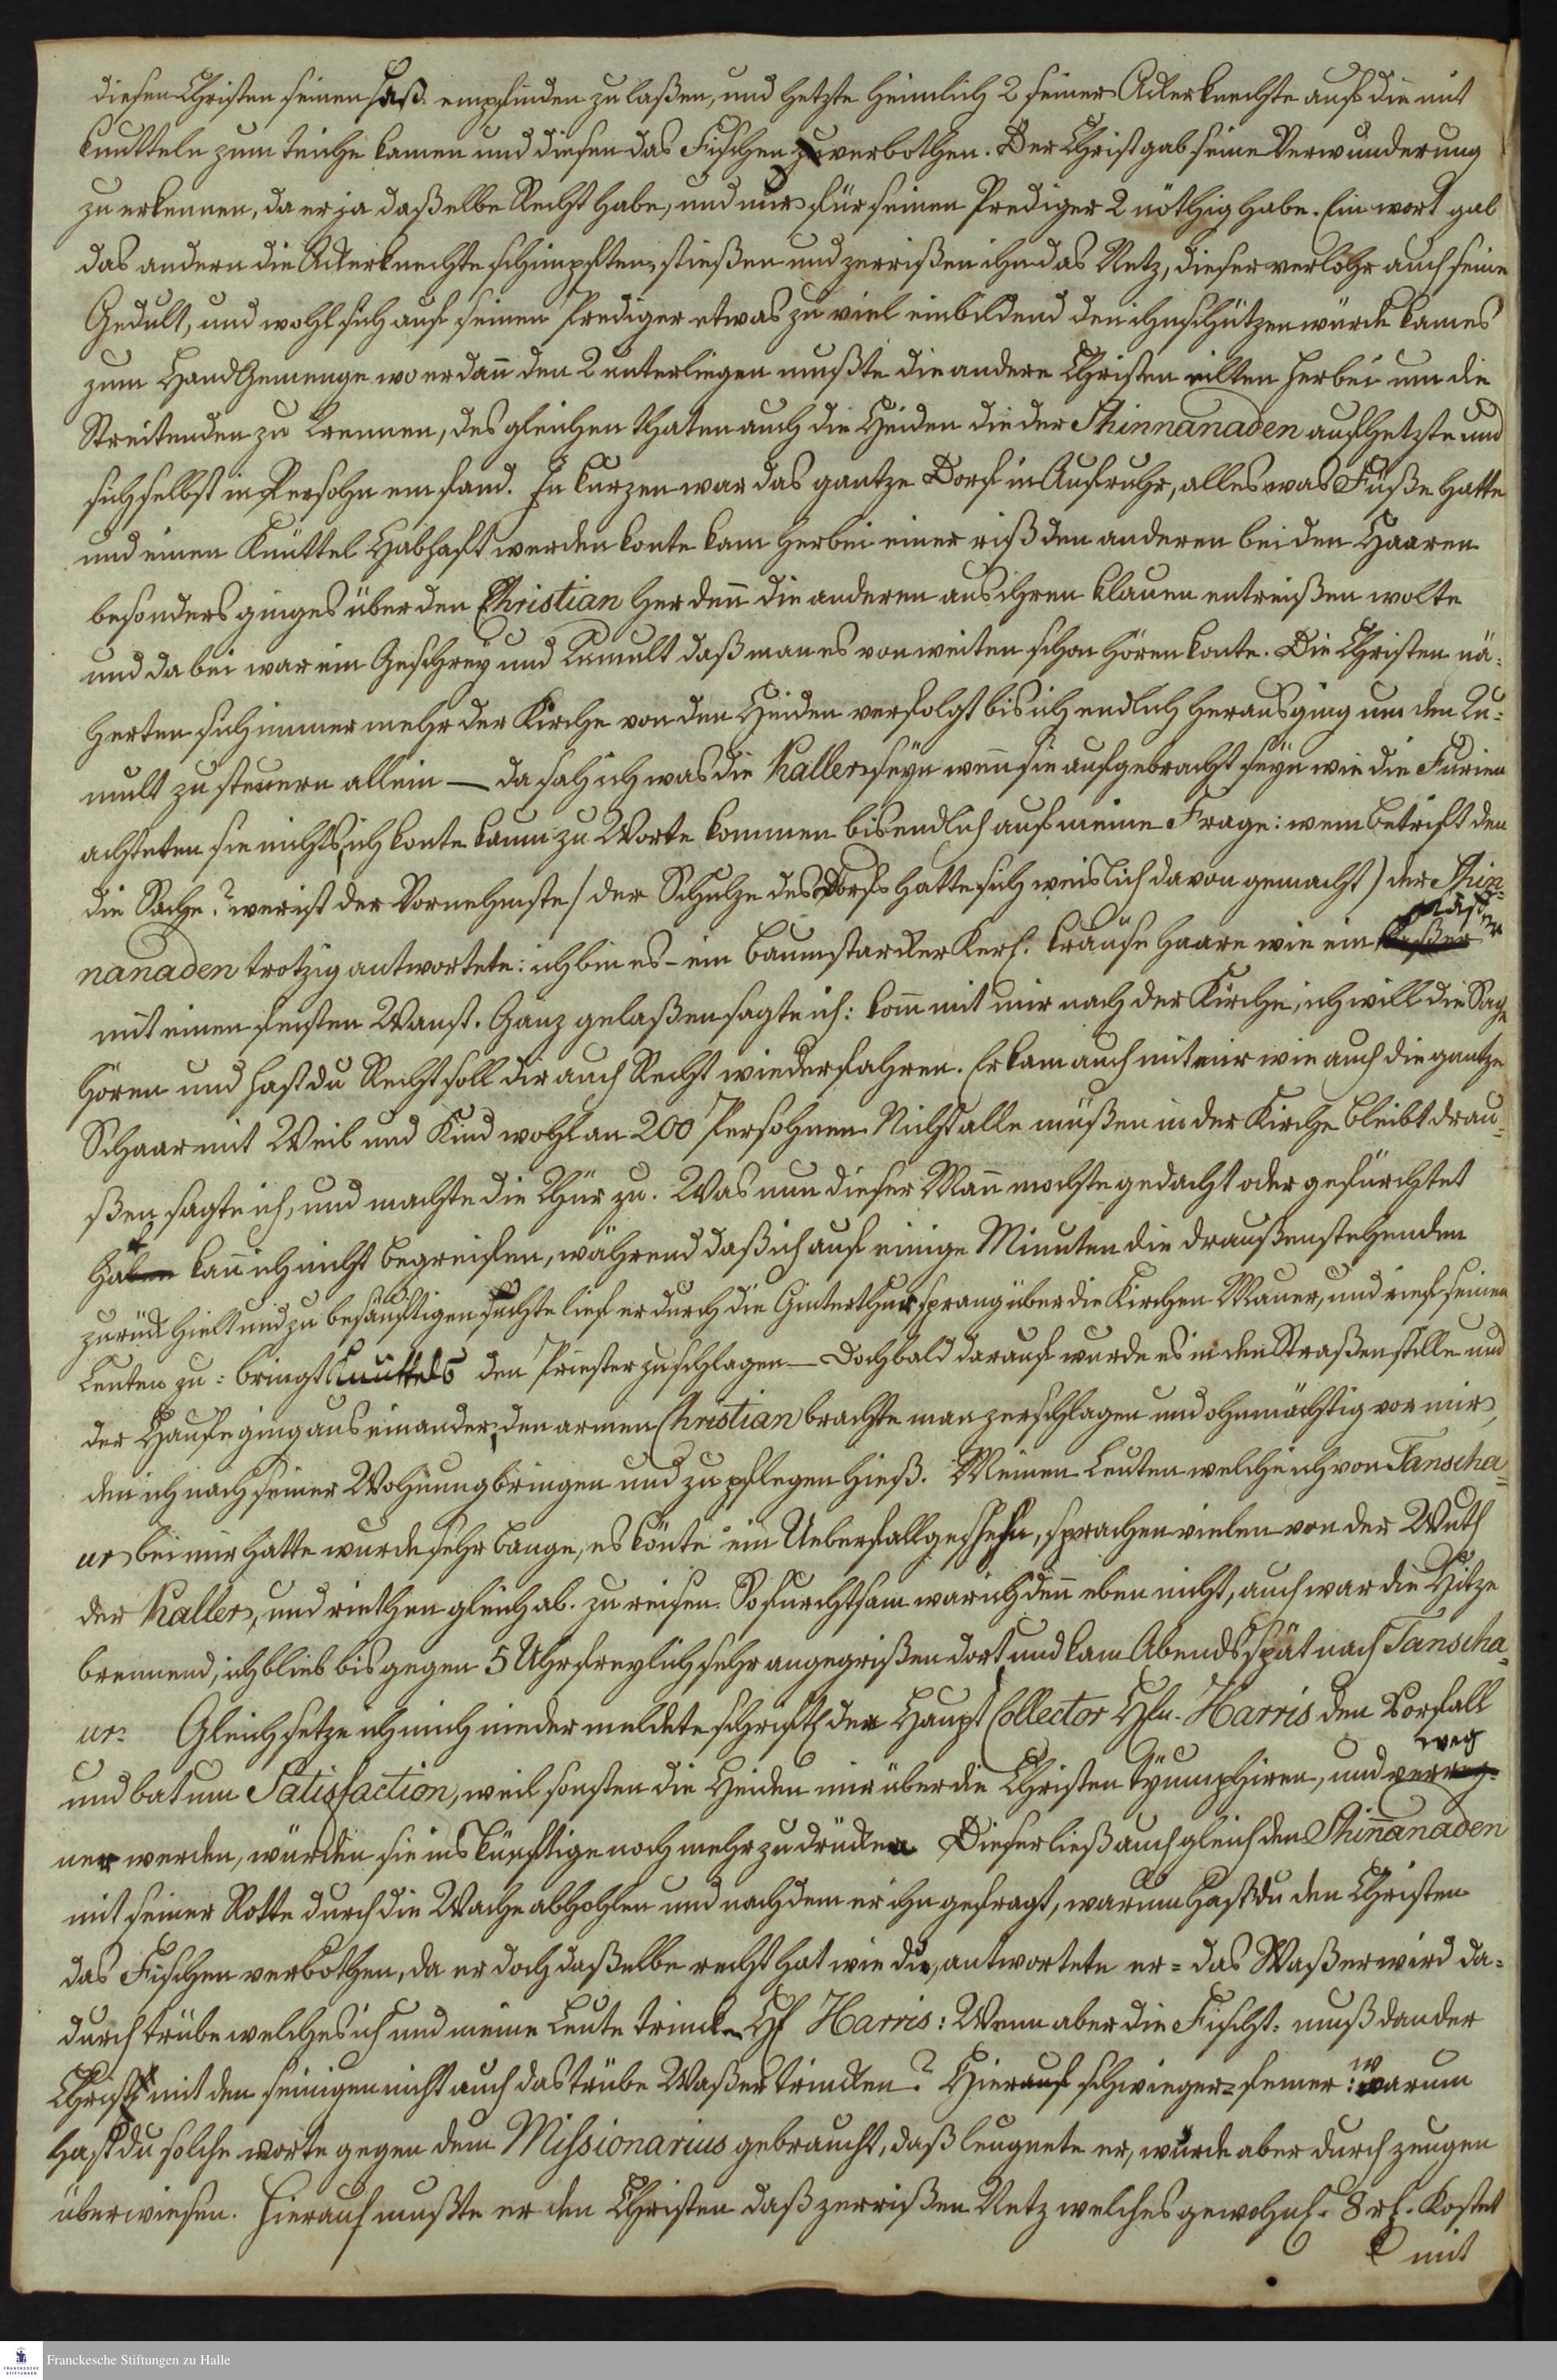 diesen Christen seinen Haß empfinden zu laßen, und hetzte heimlich 2 seiner Ackerknechte auf die mit
Knutteln zum Teiche kamen und diesen das Fischen verbothen. Der Christ gab seine Verwunderung
zu erkennen, da er ja daßelbe Recht habe, und nur für seinen Prediger 2 nöthig habe. Ein wort gab
das andern die Ackerknechte schimpften, stießen und zerrißen ihn das Netz, dieser verlohr auch seine
Gedult, und wohl sich auf seinen Prediger etwas zu viel einbildend den ihn schützen würde kam es
zum Handgemenge wo er dañ den 2 unterliegen mußte die andere Christen eilten herbei um die
Streitenden zu trennen, des gleichen thaten auch die Heiden die der Shinnanaden aufhetzte und
sich selbst in Persohn einfand. In kurzen war das gantze Dorf in Aufruhr, alles was Füße hatte
und einen Knüttel habhaft werden konte kam herbei einer riß den anderen bei den Haaren
besonders ging es über den Christian her deñ die anderen aus ihren Klauen entreißen wolte
und dabei war ein Geschrey und Tumult daß man es von weiten schon hören konte. Die Christen nä-
herten sich immer mehr der Kirche von den Heiden verfolgt bis ich endlich herausging um den Tu-
mult zu steuern allein — da sah ich was die Kaller seyn weñ sie aufgebracht seyn wie die Furien
achteten sie nichts, ich konte kaum zu Worte kommen bis endlich auf meine Frage: wem betrift den
die Sache? wer ist der Vornehmste / der Schulze des Dorfs hatte sich weislich davon gemacht) der Shin-
nanaden trotzig antwortete: ich bin es – ein baumstarcker Kerl. krause Haare wie ein
mit einen feisten Wanst. Ganz gelaßen sagte ich: kom̃ mit mir nach der Kirche, ich will die Sache
hören und hast du Recht soll dir auch Recht wiederfahren. Er kam auch mit mir wie auch die gantze
Schaar mit Weib und Kind wohl an 200 Persohnen. Nicht alle müßen in der Kirche bleibt drau-
ßen sagte ich, und machte die Thür zu. Was nun dieser Mañ mochte gedacht oder gefürchtet
kañ ich nicht begreifen, während daß ich auf einige Minuten die draußenstehenden
zurück hielt und zu besänftigen suchte lief er durch die Hinterthür, sprang über die Kirchen Mauer, und rief seinen
Leuten zu: bringt Knüttels den Priester zu schlagen — Doch bald darauf wurde es in den Straßen stille und
der Haufe ging aus einander, den armen Christian brachte man zerschlagen und ohnmächtig vor mir,
den ich nach seiner Wohnung bringen und zu pflegen hieß. Meinen Leuten welche ich von Tanscha-
ur bei mir hatte wurde sehr bange, es könte ein Ueberfall geschehn, sprachen vielen von der Wuth
der Kaller, und riethen gleich ab. zu reisen. So furchtsam war ich deñ eben nicht, auch war die Hitze
brennend, ich blieb bis gegen 5 Uhr freylich sehr angegriffen dort, und kam Abends spät nach Tanscha-
ur. Gleich setze ich mich nieder meldete schriftl. der Haupt Collector Hℓn. Harris den Vorfall
und bat um Satisfaction, weil sonsten die Heiden mir über die Christen tryumphiren, und
werden, würden sie ins künftige noch mehr zu drücken. Dieser ließ auch gleich den Shiñanaden
mit seiner Rotte durch die Wache abhohlen und nachdem er ihn gefragt, warum hast du den Christen
das Fischen verbothen, da er doch daßelbe recht hat wie du, antwortete er = das Waßer wird da-
durch trübe welches ich und meine Leute trincken H Harris: Wenn aber du Fischst: muß dan der
Christ mit den seinigen nicht auch das trübe Waßer trincken? Hierauf schwieg er = ferner: warum
hast du solche worte gegen dem Missionarius gebraucht, daß leugnete er, wurde aber durch zeugen
überwiesen. Hierauf mußte er den Christen daß zerrißen Netz welches gewohnl. 8 rℓ. kostet
mit
Franckesche Stiftungen zu Halle